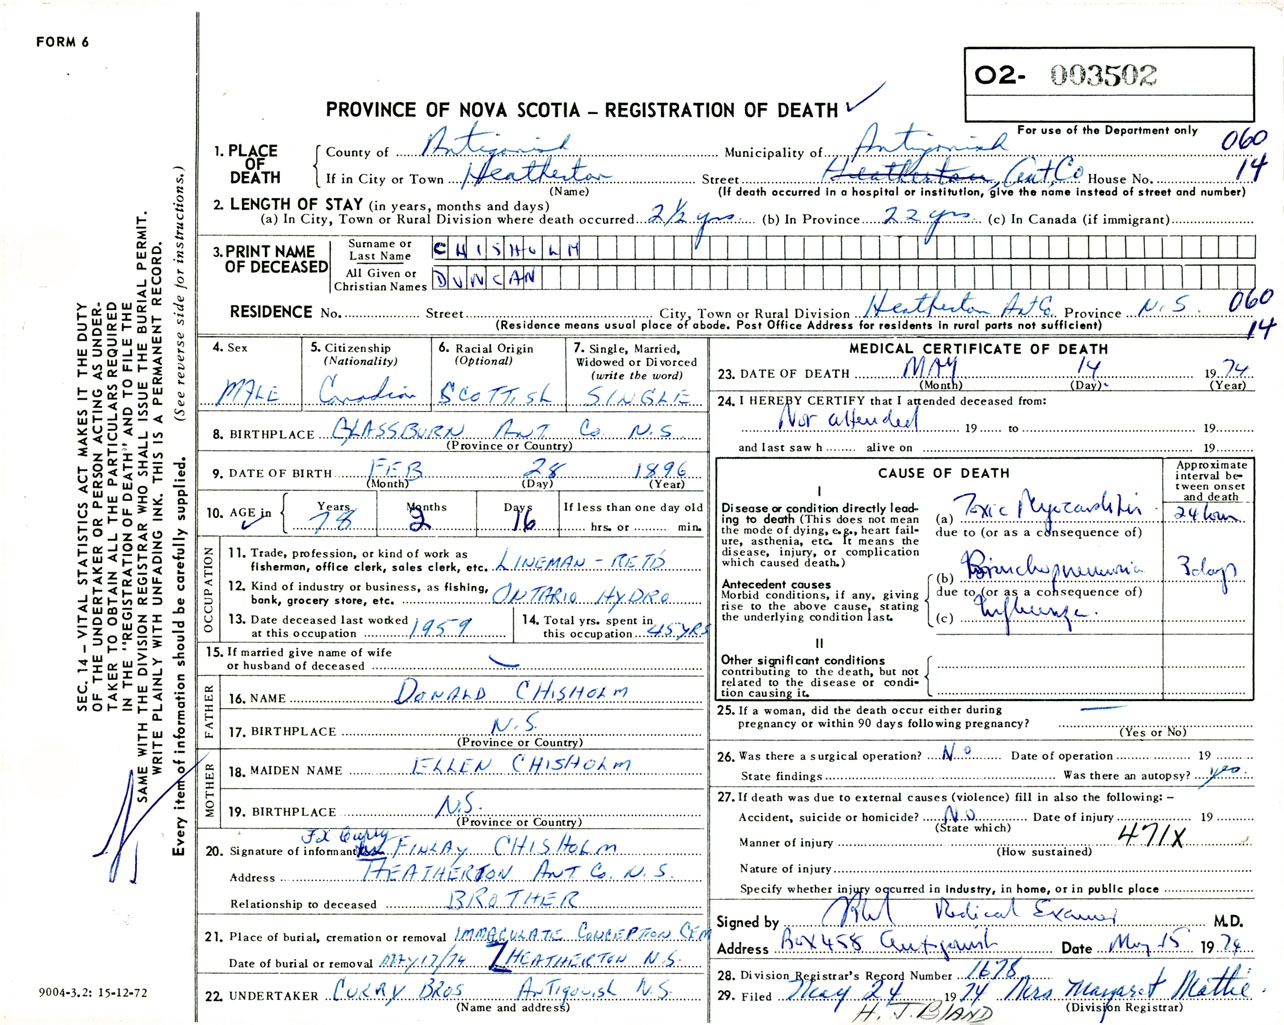 FORM 6
O2- 003502
PROVINCE OF NOVA SCOTIA – REGISTRATION OF DEATH ✓
For use of the Department only
060
14
1. PLACE OF DEATH
County of Antigonish Municipality of Antigonish
If in City or Town Heatherton Street Heatherton, Ant. Co House No.
(Name) (If death occurred in a hospital or institution, give the name instead of street and number)
2. LENGTH OF STAY (in years, months and days)
(a) In City, Town or Rural Division where death occurred 2½ yrs (b) In Province 22 yrs (c) In Canada (if immigrant)
3. PRINT NAME OF DECEASED
Surname or Last Name CHISHOLM
All Given or Christian Names DUNCAN
RESIDENCE No. Street City, Town or Rural Division Heatherton Ant Co. Province N.S. 060
(Residence means usual place of abode. Post Office Address for residents in rural parts not sufficient) 14
4. Sex MALE
5. Citizenship (Nationality) Canadian
6. Racial Origin (Optional) SCOTTISH
7. Single, Married, Widowed or Divorced (write the word) SINGLE
8. BIRTHPLACE GLASSBURN ANT Co. N.S.
(Province or Country)
9. DATE OF BIRTH FEB 28 1896
(Month) (Day) (Year)
10. AGE in ✓ Years 78 Months 2 Days 16 If less than one day old
hrs. or min.
OCCUPATION
11. Trade, profession, or kind of work as
fisherman, office clerk, sales clerk, etc. LINEMAN - RET'D
12. Kind of industry or business, as fishing,
bank, grocery store, etc. ONTARIO HYDRO
13. Date deceased last worked
at this occupation 1959
14. Total yrs. spent in
this occupation 45 YRS
15. If married give name of wife
or husband of deceased
FATHER
16. NAME DONALD CHISHOLM
17. BIRTHPLACE N.S.
(Province or Country)
MOTHER
18. MAIDEN NAME ELLEN CHISHOLM
19. BIRTHPLACE N.S.
(Province or Country)
20. Signature of informant FINLAY CHISHOLM
Address HEATHERTON ANT Co. N.S.
Relationship to deceased BROTHER
21. Place of burial, cremation or removal IMMACULATE CONCEPTION CEM
Date of burial or removal MAY 17/74 HEATHERTON N.S.
22. UNDERTAKER CURRY BROS ANTIGONISH N.S.
(Name and address)
MEDICAL CERTIFICATE OF DEATH
23. DATE OF DEATH MAY 14 1974
(Month) (Day) (Year)
24. I HEREBY CERTIFY that I attended deceased from:
Not attended 19 to 19
and last saw h alive on 19
CAUSE OF DEATH
Approximate interval between onset and death
I
Disease or condition directly leading to death (This does not mean the mode of dying, e.g., heart failure, asthenia, etc. It means the disease, injury, or complication which caused death.)
(a) Toxic Myocarditis 24 hours
due to (or as a consequence of)
Antecedent causes
Morbid conditions, if any, giving rise to the above cause, stating the underlying condition last.
(b) Bronchopneumonia 3 days
due to (or as a consequence of)
(c) Influenza.
II
Other significant conditions
contributing to the death, but not related to the disease or condition causing it.
25. If a woman, did the death occur either during
pregnancy or within 90 days following pregnancy? —
(Yes or No)
26. Was there a surgical operation? No Date of operation 19
State findings Was there an autopsy? yes
27. If death was due to external causes (violence) fill in also the following: –
Accident, suicide or homicide? No Date of injury 19
(State which)
Manner of injury 471X
(How sustained)
Nature of injury
Specify whether injury occurred in Industry, in home, or in public place
Signed by Medical Examiner M.D.
Address Box 458 Antigonish Date May 15 1974
28. Division Registrar's Record Number 1678
29. Filed May 24 1974 Mrs Margaret Mattie
H. J. BLAND (Division Registrar)
SEC. 14 – VITAL STATISTICS ACT MAKES IT THE DUTY
OF THE UNDERTAKER OR PERSON ACTING AS UNDER-
TAKER TO OBTAIN ALL THE PARTICULARS REQUIRED
IN THE "REGISTRATION OF DEATH" AND TO FILE THE
SAME WITH THE DIVISION REGISTRAR WHO SHALL ISSUE THE BURIAL PERMIT.
WRITE PLAINLY WITH UNFADING INK. THIS IS A PERMANENT RECORD.
Every item of information should be carefully supplied. (See reverse side for instructions.)
9004-3.2: 15-12-72